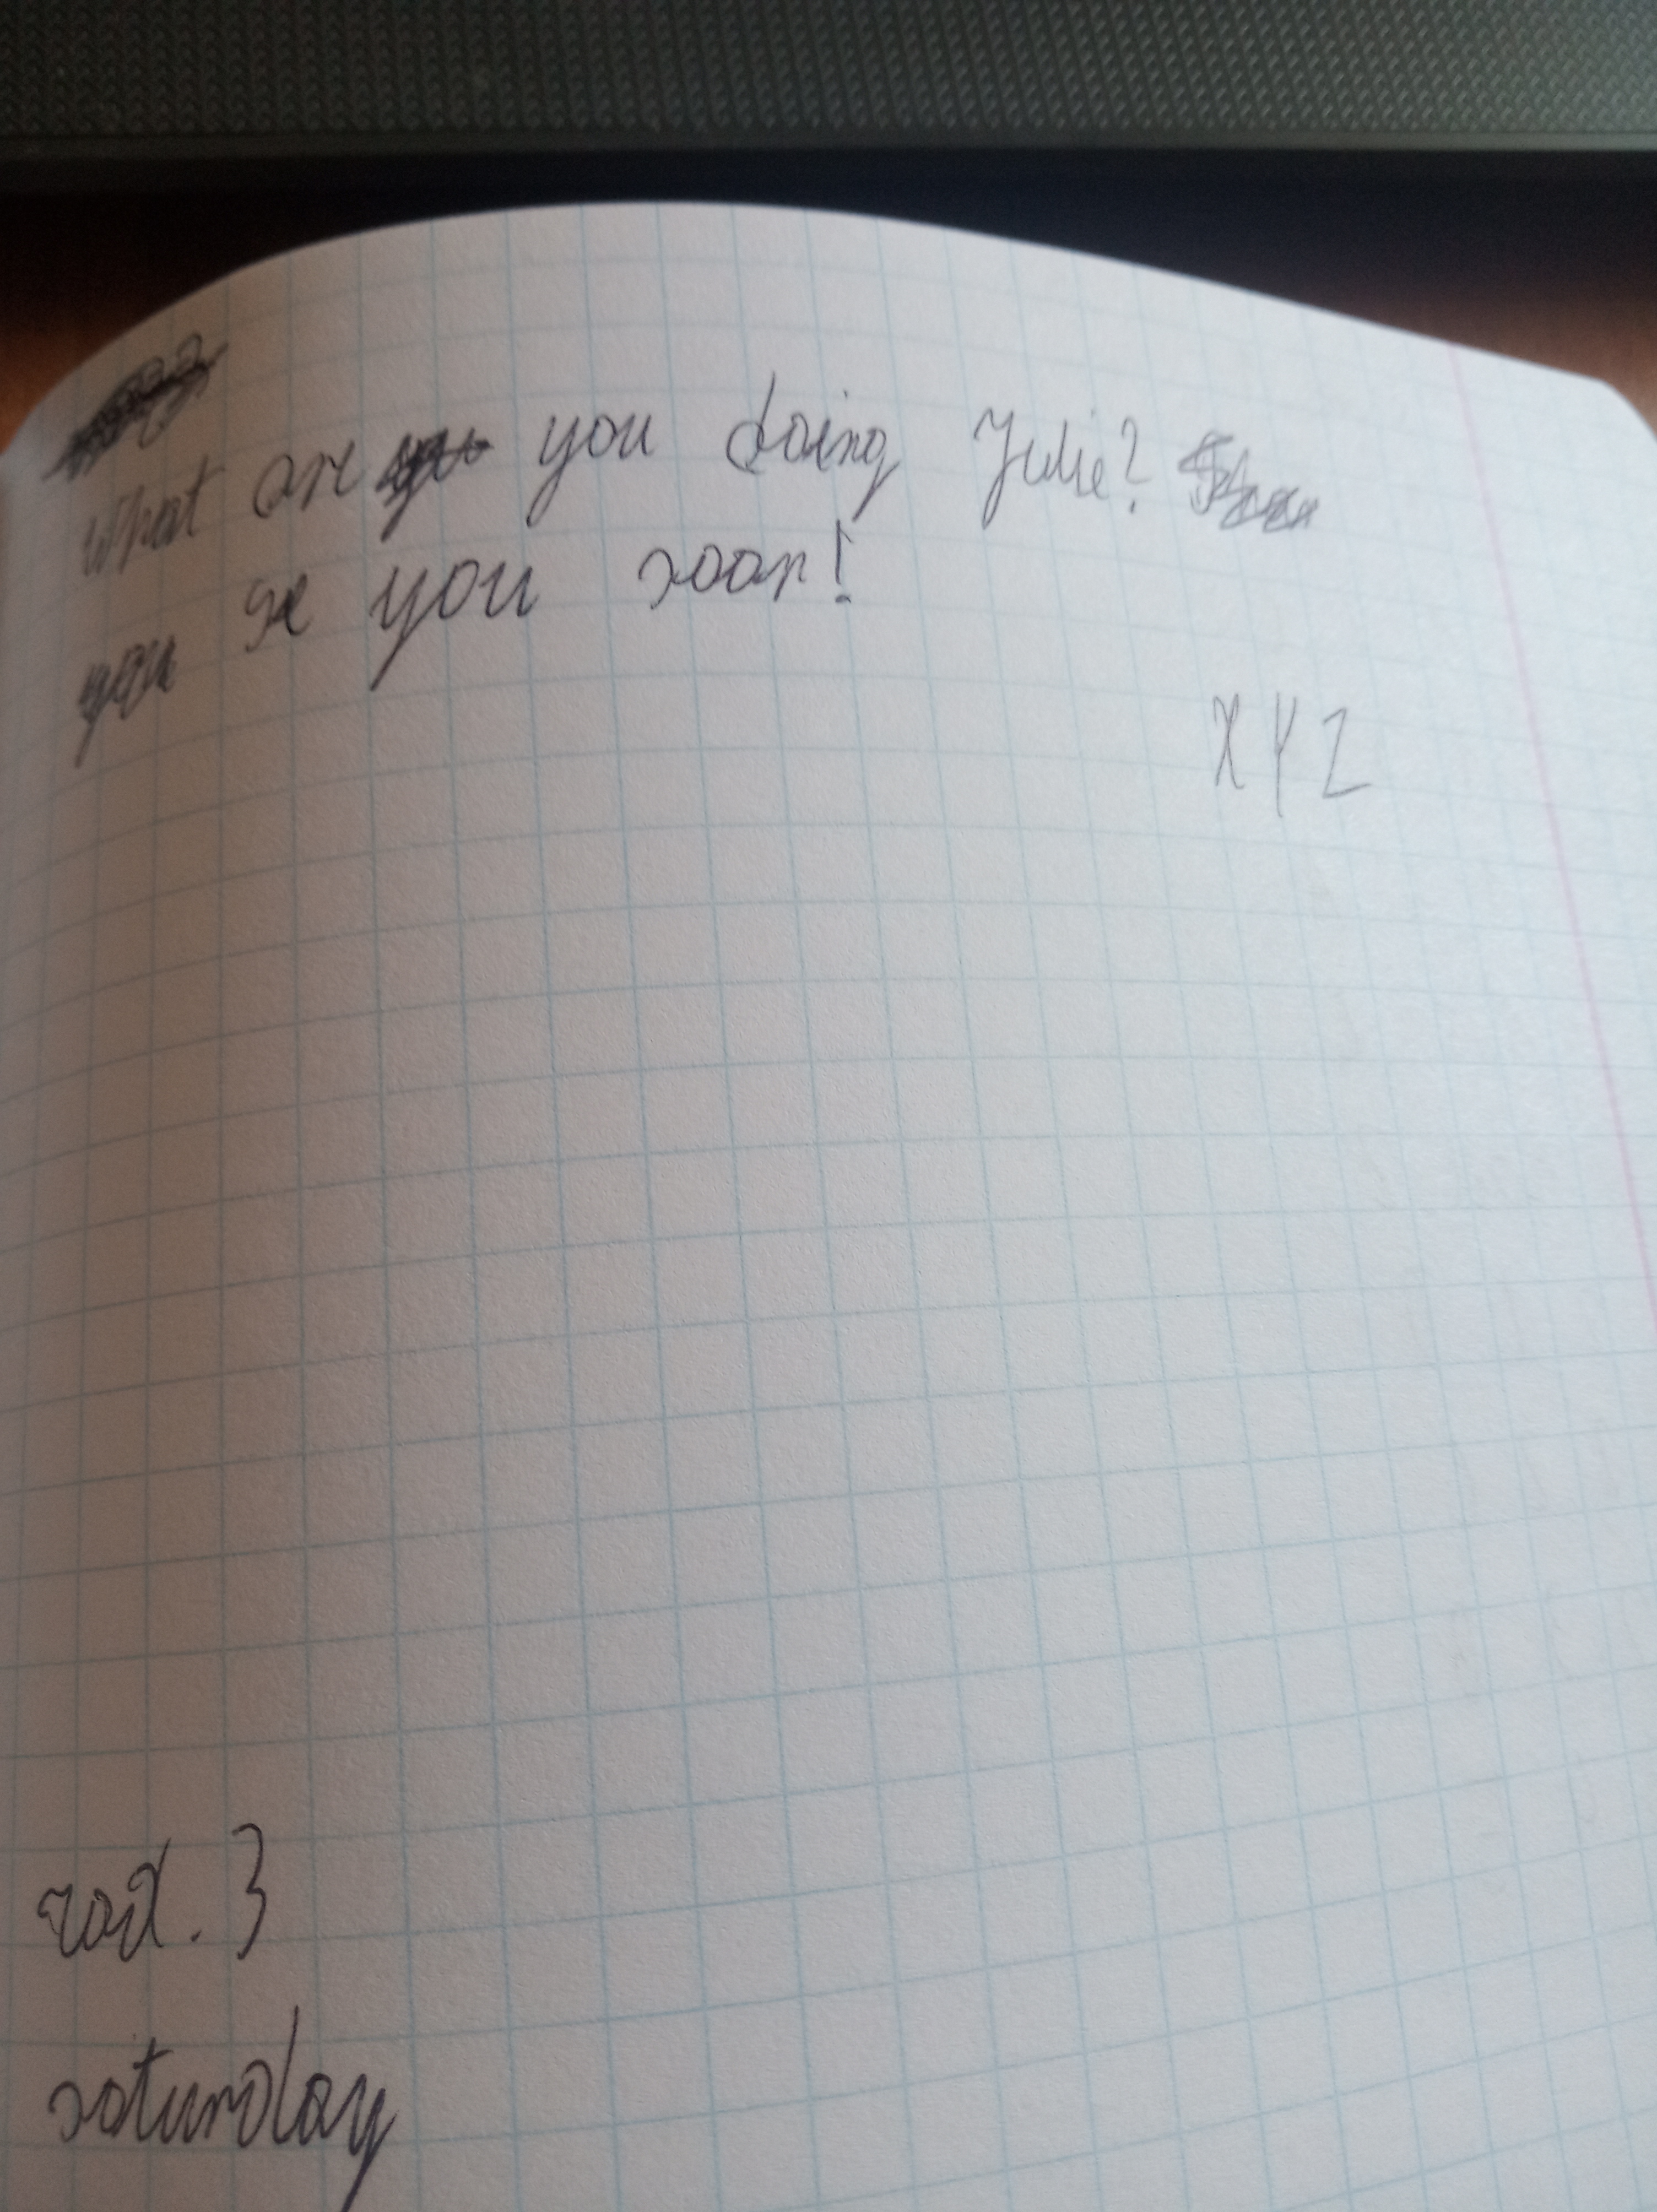 What are you doing Julie?
you se you soon!
XYZ
zad. 3
saturday